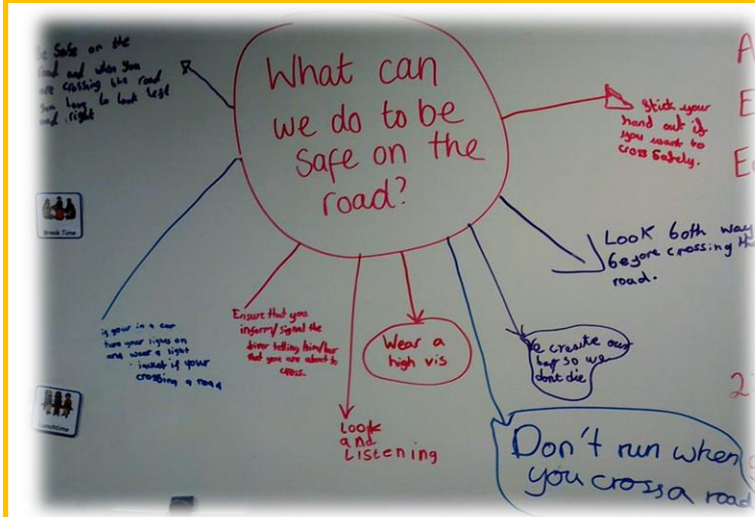 What can
we do to be
safe on the
road?
Be Safe on the
road and when you
are crossing the road
you have to look left
and right
Stick your
hand out if
you want to
cross safely.
Look both way
before crossing the
road.
Break Time
is your in a car
turn your lights on
and wear a light
jacket if your
crossing a road
Ensure that you
inform/signal the
driver telling him/her
that you are about to
cross.
Wear a
high vis
Look
and
Listening
so we
dont die
Don't run when
you cross a road
Lunchtime